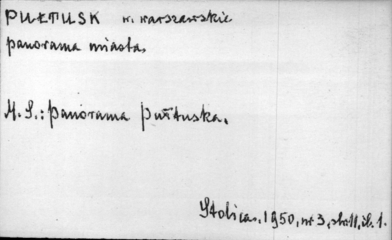 PUŁTUSK w. warszawskie
panorama miasta.
M. S.: panorama Pułtuska.
Stolica, 1950, nr 3, str. 11, il. 1.